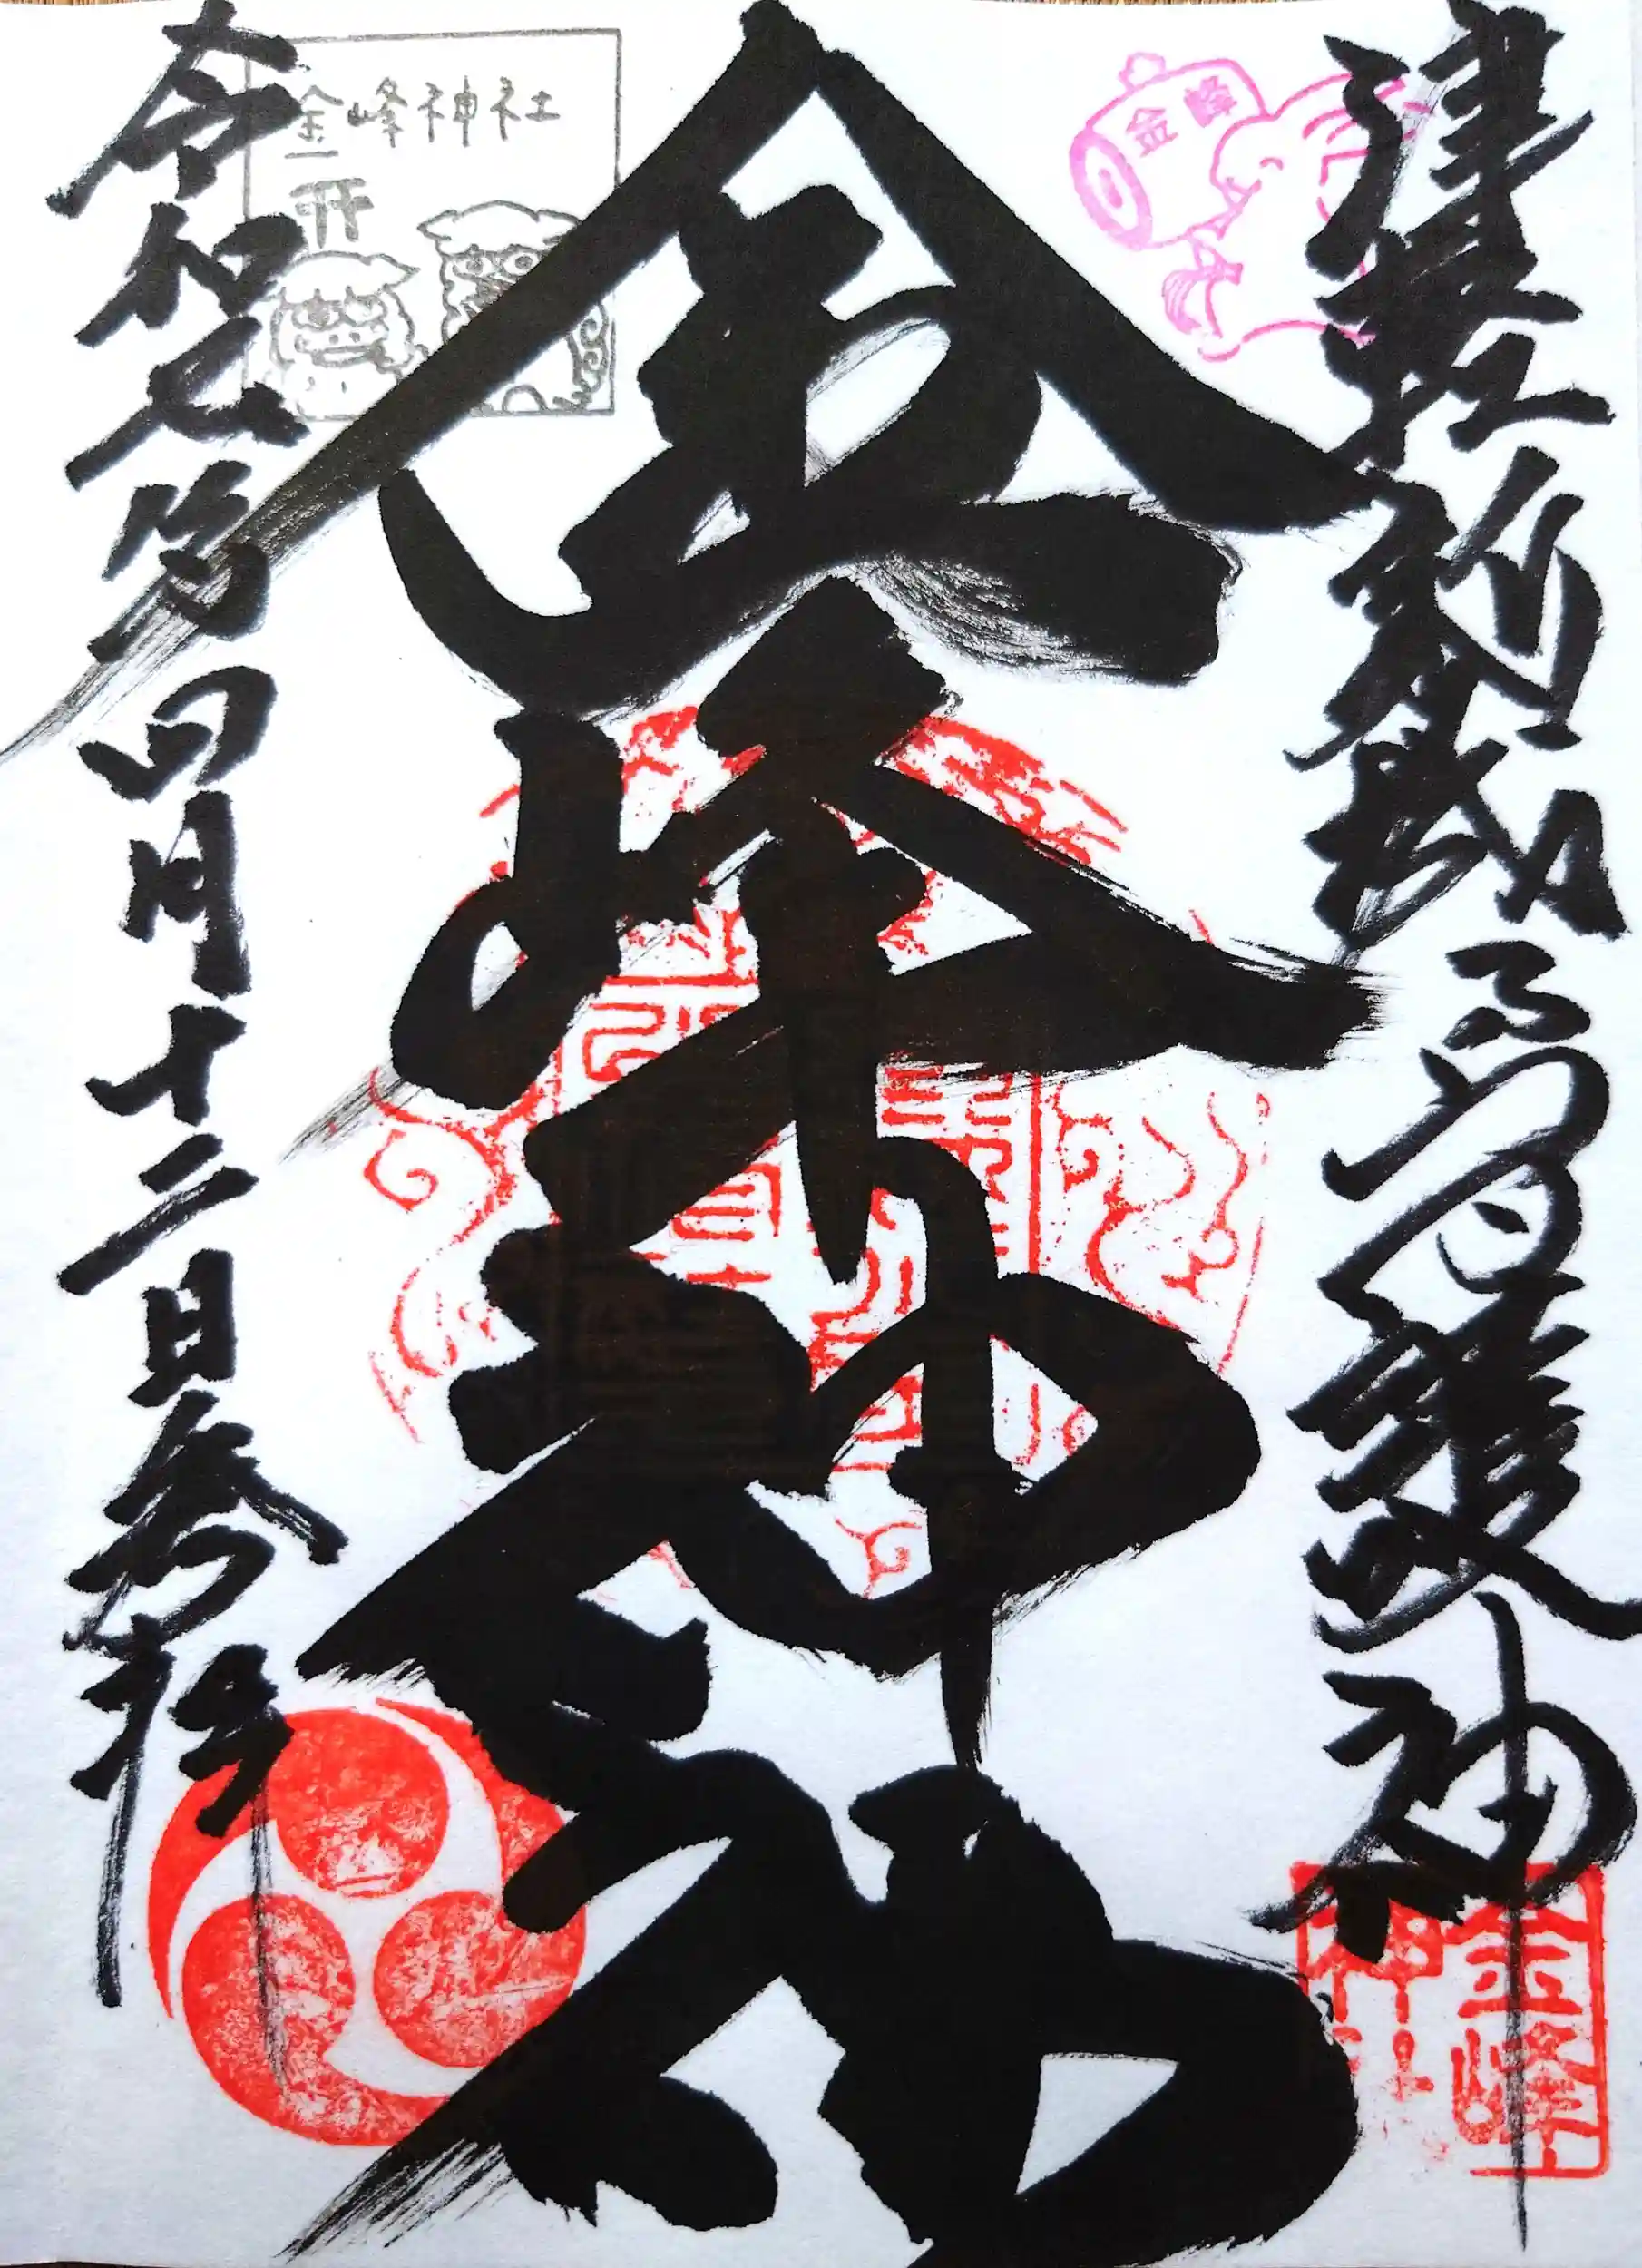 津軽新城之守護神
金峰
金峰神社
金峰神社
令和七年四月十二日参拝
金峰神社